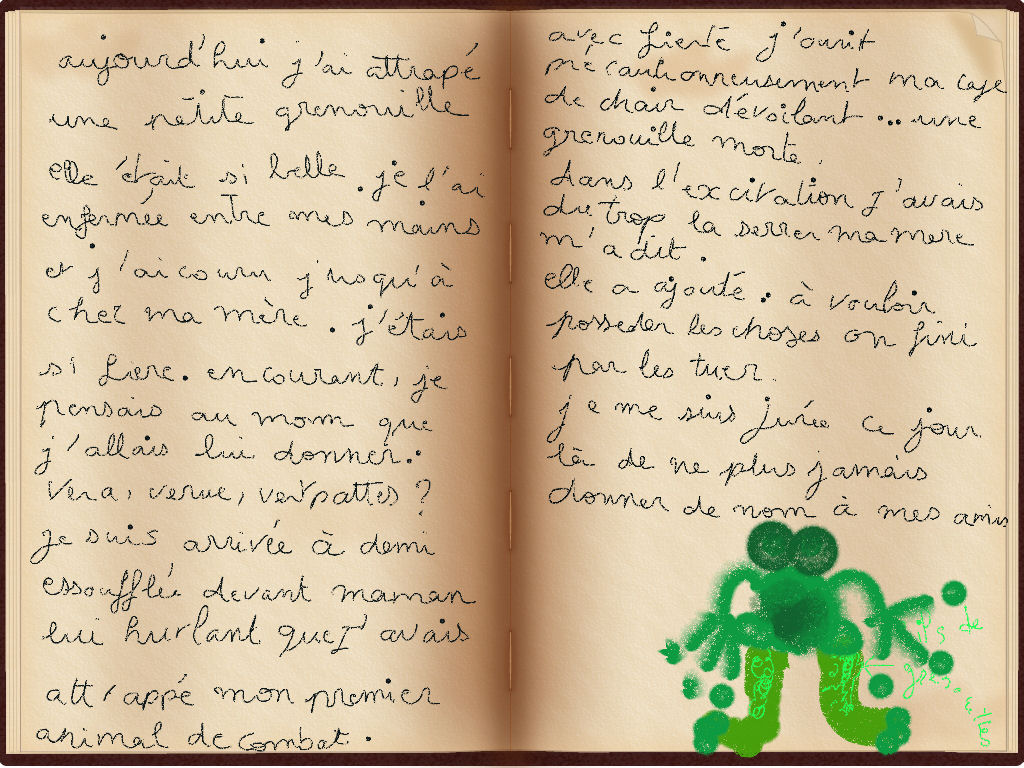 aujourd'hui j'ai attrapé
une petite grenouille
elle était si belle . je l'ai
enfermée entre mes mains
et j'ai couru jusqu'à
chez ma mère . j'étais
si fière. en courant, je
pensais au nom que
j'allais lui donner..
Vera, verue, vertpattes ?
je suis arrivée à demi
essoufflée devant maman
lui hurlant que J'avais
att'appé mon premier
animal de combat .
avec fierté j'ouvrit
précautionneusement ma cage
de chair dévoilant ... une
grenouille morte .
dans l'excitation J'avais
du trop la serrer ma mere
m'a dit .
elle a ajouté . à vouloir
posseder les choses on fini
par les tuer .
je me suis jurée ce jour
là de ne plus jamais
donner de nom à mes amis